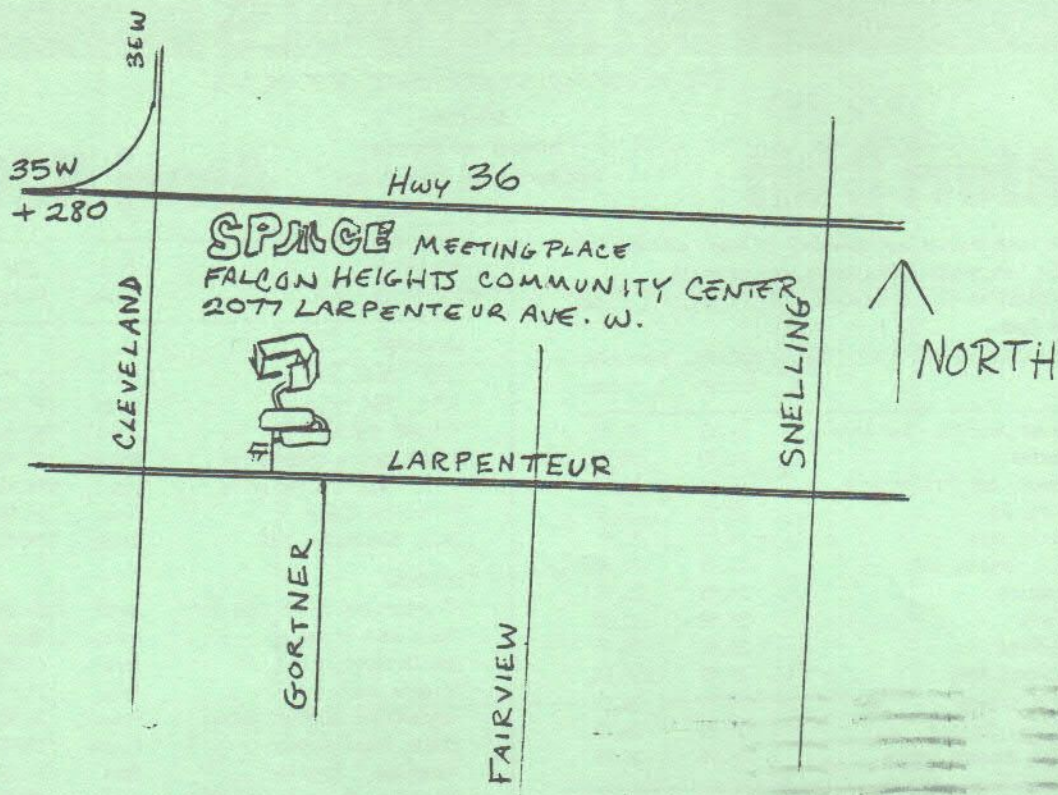 35W
35W
+ 280
Hwy 36
SPACE MEETING PLACE
FALCON HEIGHTS COMMUNITY CENTER
2077 LARPENTEUR AVE. W.
CLEVELAND
SNELLING
NORTH
LARPENTEUR
GORTNER
FAIRVIEW